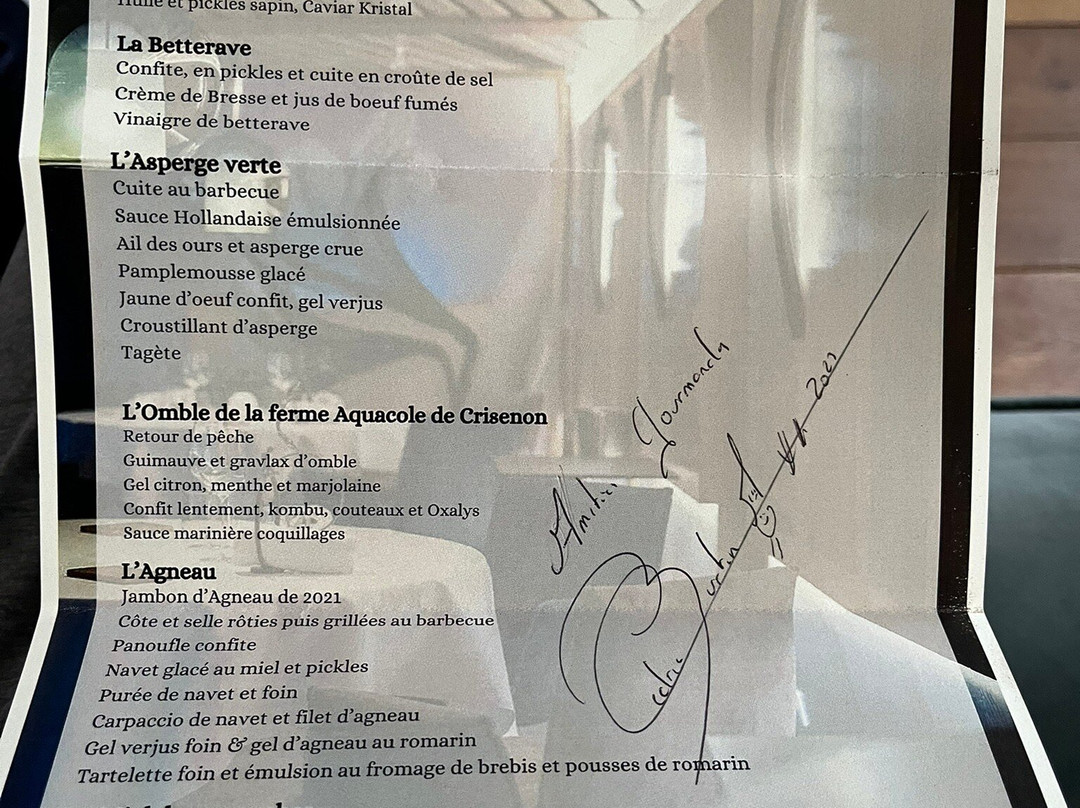 Huile et pickles sapin, Caviar Kristal
La Betterave
Confite, en pickles et cuite en croûte de sel
Crème de Bresse et jus de boeuf fumés
Vinaigre de betterave
L'Asperge verte
Cuite au barbecue
Sauce Hollandaise émulsionnée
Ail des ours et asperge crue
Pamplemousse glacé
Jaune d'oeuf confit, gel verjus
Croustillant d'asperge
Tagète
L'Omble de la ferme Aquacole de Crisenon
Retour de pêche
Guimauve et gravlax d'omble
Gel citron, menthe et marjolaine
Confit lentement, kombu, couteaux et Oxalys
Sauce marinière coquillages
L'Agneau
Jambon d'Agneau de 2021
Côte et selle rôties puis grillées au barbecue
Panoufle confite
Navet glacé au miel et pickles
Purée de navet et foin
Carpaccio de navet et filet d'agneau
Gel verjus foin & gel d'agneau au romarin
Tartelette foin et émulsion au fromage de brebis et pousses de romarin
Cédric Burtin